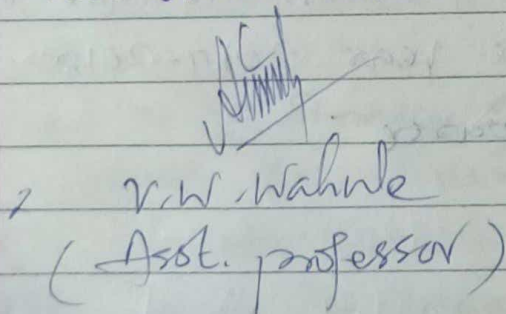 V.W. Wahule
(Asst. professor)